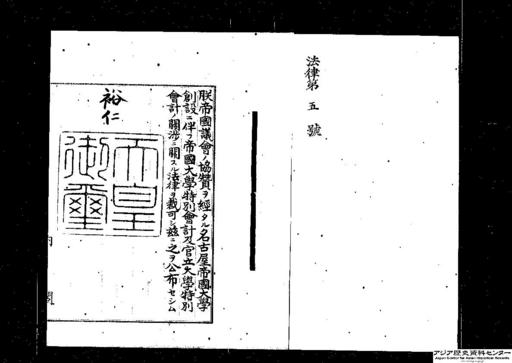 法律第五號
朕帝國議會ノ協贊ヲ經タル名古屋帝國大學
創設ニ伴フ帝國大學特別會計及官立大學特別
會計ノ關涉ニ關スル法律ヲ裁可シ茲ニ之ヲ公布セシム
裕仁
天皇御璽
内閣
アジア歴史資料センター
Japan Center for Asian Historical Records